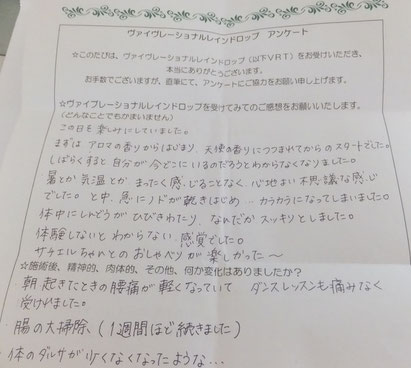 ヴァイヴレーショナルレインドロップ アンケート
☆このたびは、ヴァイヴレーショナルレインドロップ(以下VRT)をお受けいただき、
本当にありがとうございます。
お手数でございますが、直筆にて、アンケートにご協力をお願い申し上げます。
☆ヴァイブレーショナルレインドロップを受けてみてのご感想をお願いいたします。
(どんなことでもかまいません)
この日を楽しみにしていました。
まずは アロマの香りからはじまり、天使の香りにつつまれてからのスタートでした。
しばらくすると自分が今どこにいるのだろうとわからなくなりました。
暑とか気温とか まったく感じることなく 心地よい不思議な感じ
でした。と中、急にノドが乾きはじめ… カラカラになってしまいました。
体中にしんどうがひびきわたり、なんだかスッキリとしました。
体験しないとわからない 感覚でした。
サチエルちゃんとのおしゃべりが楽しかった〜
☆施術後、精神的、肉体的、その他、何か変化はありましたか?
朝起きたときの腰痛が軽くなっていて ダンスレッスンも痛みなく
受けれました。
腸の大掃除、(1週間ほど続きました)
体のダルサが少くなくなったような...